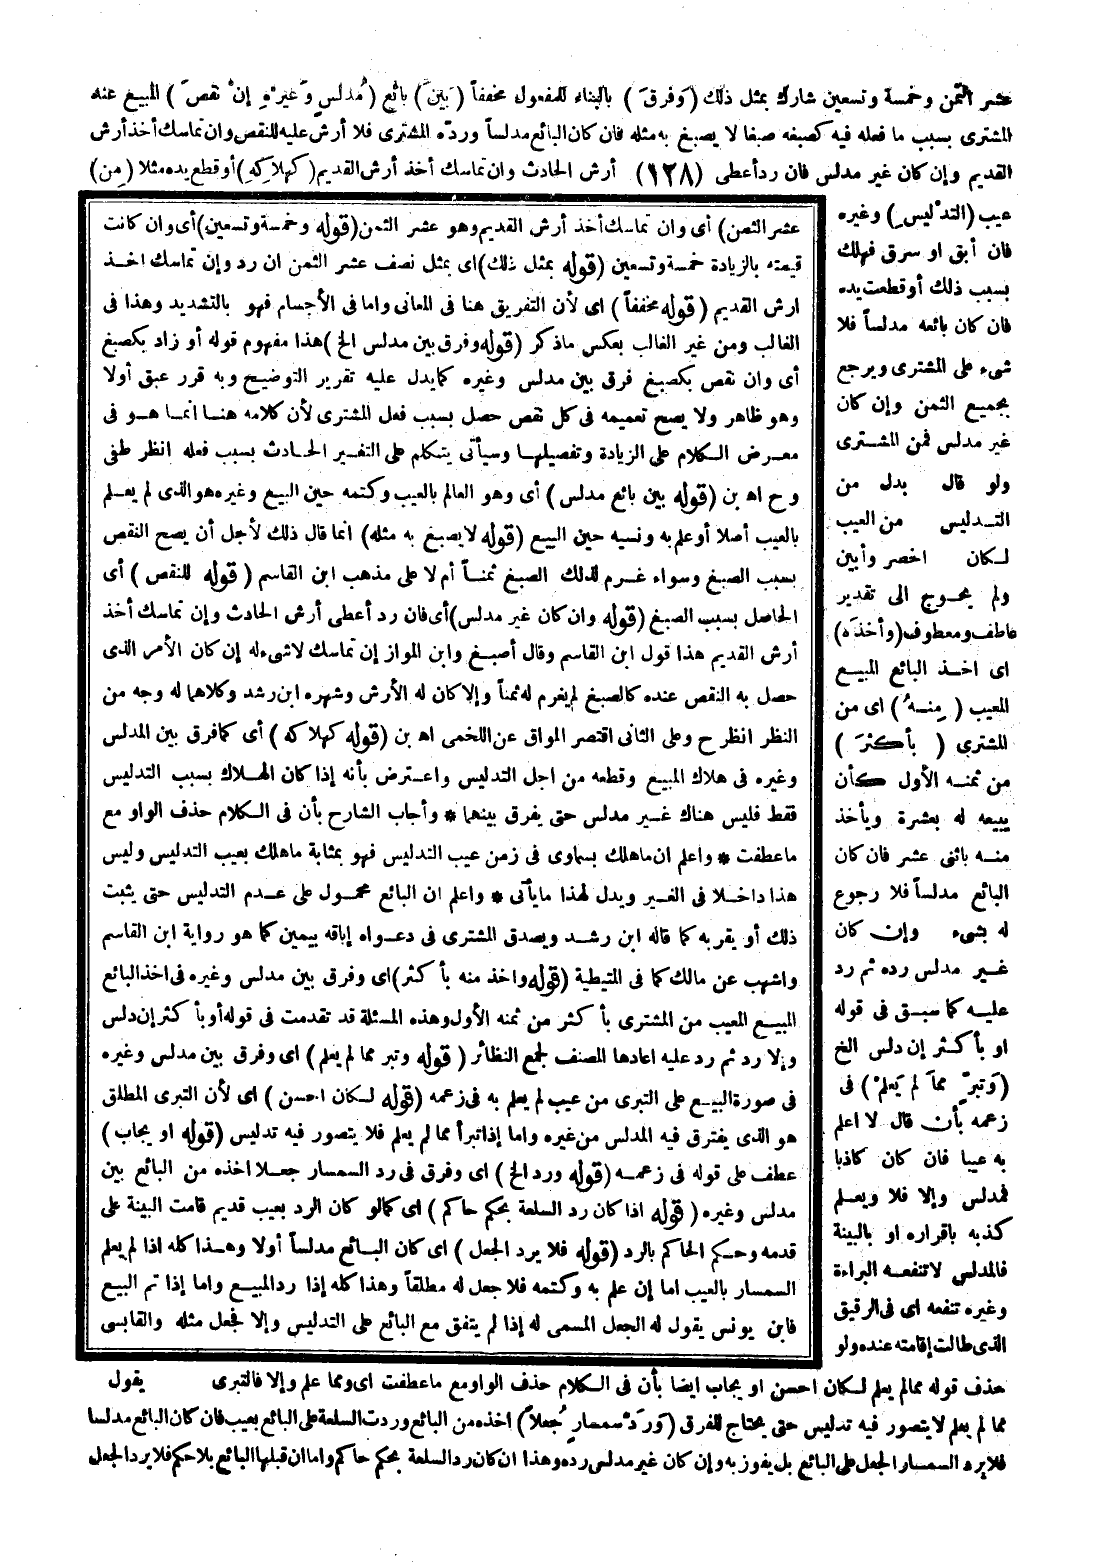 عشر الثمن وخمسة وتسعين شارك بمثل ذلك (وَفرقَ) بالبناء للمفعول مخففاً (بَينَ) بائع (مُدلسٍ وَغيرهِ إنْ نقصَ) المبيع عنده
المشترى بسبب ما فعله فيه كصبغه صبغا لا يصبغ به مثله فان كان البائع مدلساً ورده المشترى فلا أرش عليه للنقص وان تماسك أخذ أرش
القديم وإن كان غير مدلس فان رد أعطى (١٢٨) أرش الحادث وان تماسك أخذ أرش القديم (كهلاكهِ) أو قطع يده مثلا (مِن)
عيب (التدْليسِ) وغيره
فان أبق او سرق فهلك
بسبب ذلك أو قطعت يده
فان كان بائعه مدلساً فلا
شىء على المشترى ويرجع
بجميع الثمن وإن كان
غير مدلس فمن المشترى
ولو قال بدل من
التدليس من العيب
لكان اخصر وأبين
ولم يحوج الى تقدير
عاطف ومعطوف (وأخذَه)
اى اخذ البائع المبيع
المعيب (مِنهُ) اى من
المشترى (بأكثرَ)
من ثمنه الأول كأن
يبيعه له بعشرة ويأخذ
منه باثنى عشر فان كان
البائع مدلساً فلا رجوع
له بشىء وإن كان
غير مدلس رده ثم رد
عليه كما سبق فى قوله
او بأكثر إن دلس الخ
(وَتبرّ مماَ لم يَعلمْ) فى
زعمه بأن قال لا اعلم
به عيبا فان كان كاذبا
فمدلس وإلا فلا ويعلم
كذبه باقراره او بالبينة
فالمدلس لا تنفعه البراءة
وغيره تنفعه اى فى الرقيق
الذى طالت إقامته عنده ولو
حذف قوله مما لم يعلم لكان احسن او يجاب ايضا بأن فى الكلام حذف الواو مع ما عطفت اى ومما علم وإلا فالتبرى يقول
مما لم يعلم لا يتصور فيه تدليس حتى يحتاج للفرق (وَردّ سمسارٍ جُعلاً) اخذه من البائع وردت السلعة على البائع بعيب فان كان البائع مدلسا
فلا يرد السمسار الجعل على البائع بل يفوز به وإن كان غير مدلس رده وهذا ان كان رد السلعة بحكم حاكم واما ان قبلها البائع بلا حكم فلا يرد الجعل
عشر الثمن) أى وان تماسك أخذ أرش القديم وهو عشر الثمن (قوله وخمسة وتسعين) أى وان كانت
قيمته بالزيادة خمسة وتسعين (قوله بمثل ذلك) اى بمثل نصف عشر الثمن ان رد وإن تماسك اخذ
ارش القديم (قوله مخففاً) اى لأن التفريق هنا فى المعانى واما فى الأجسام فهو بالتشديد وهذا فى
الغالب ومن غير الغالب بعكس ما ذكر (قوله وفرق بين مدلس الخ) هذا مفهوم قوله أو زاد بكصبغ
أى وان نقص بكصبغ فرق بين مدلس وغيره كما يدل عليه تقرير التوضيح وبه قرر عبق أولا
وهو ظاهر ولا يصح تعميمه فى كل نقص حصل بسبب فعل المشترى لأن كلامه هنا انما هو فى
معرض الكلام على الزيادة وتفصيلها وسيأتى يتكلم على التغير الحادث بسبب فعله انظر طفى
و ح اه بن (قوله بين بائع مدلس) أى وهو العالم بالعيب وكتمه حين البيع وغيره هو الذى لم يعلم
بالعيب أصلا أو علم به ونسيه حين البيع (قوله لا يصبغ به مثله) انما قال ذلك لأجل أن يصح النقص
بسبب الصبغ وسواء غرم لذلك الصبغ ثمنا أم لا على مذهب ابن القاسم (قوله للنقص) أى
الحاصل بسبب الصبغ (قوله وان كان غير مدلس) أى فان رد أعطى أرش الحادث وإن تماسك أخذ
أرش القديم هذا قول ابن القاسم وقال أصبغ وابن المواز إن تماسك لا شىء له إن كان الأمر الذى
حصل به النقص عنده كالصبغ لم يغرم له ثمناً وإلا كان له الأرش وشهره ابن رشد وكلاهما له وجه من
النظر انظر ح وعلى الثانى اقتصر المواق عن اللخمى اه بن (قوله كهلاكه) أى كما فرق بين المدلس
وغيره فى هلاك المبيع وقطعه من اجل التدليس واعترض بأنه إذا كان الهلاك بسبب التدليس
فقط فليس هناك غير مدلس حتى يفرق بينهما * وأجاب الشارح بأن فى الكلام حذف الواو مع
ما عطفت * واعلم ان ما هلك بسماوى فى زمن عيب التدليس فهو بمثابة ما هلك بعيب التدليس وليس
هذا داخلا فى الغير ويدل لهذا ما يأتى * واعلم ان البائع محمول على عدم التدليس حتى يثبت
ذلك أو يقر به كما قاله ابن رشد ويصدق المشترى فى دعواه إباقه بيمين كما هو رواية ابن القاسم
واشهب عن مالك كما فى المتيطية (قوله واخذ منه بأكثر) اى وفرق بين مدلس وغيره فى اخذ البائع
المبيع المعيب من المشترى بأكثر من ثمنه الأول وهذه المسئلة قد تقدمت فى قوله أو بأكثر إن دلس
وإلا رد ثم رد عليه اعادها المصنف لجمع النظائر (قوله وتبر مما لم يعلم) اى وفرق بين مدلس وغيره
فى صورة البيع على التبرى من عيب لم يعلم به فى زعمه (قوله لكان احسن) اى لأن التبرى المطلق
هو الذى يفترق فيه المدلس من غيره واما إذا تبرأ مما لم يعلم فلا يتصور فيه تدليس (قوله او يجاب)
عطف على قوله فى زعمه (قوله ورد الخ) اى وفرق فى رد السمسار جعلا اخذه من البائع بين
مدلس وغيره (قوله اذا كان رد السلعة بحكم حاكم) اى كما لو كان الرد بعيب قديم قامت البينة على
قدمه وحكم الحاكم بالرد (قوله فلا يرد الجعل) اى كان البائع مدلساً أولا وهذا كله اذا لم يعلم
السمسار بالعيب اما إن علم به وكتمه فلا جعل له مطلقاً وهذا كله إذا رد المبيع واما إذا تم البيع
فابن يونس يقول له الجعل المسمى له إذا لم يتفق مع البائع على التدليس وإلا فجعل مثله والقابسى